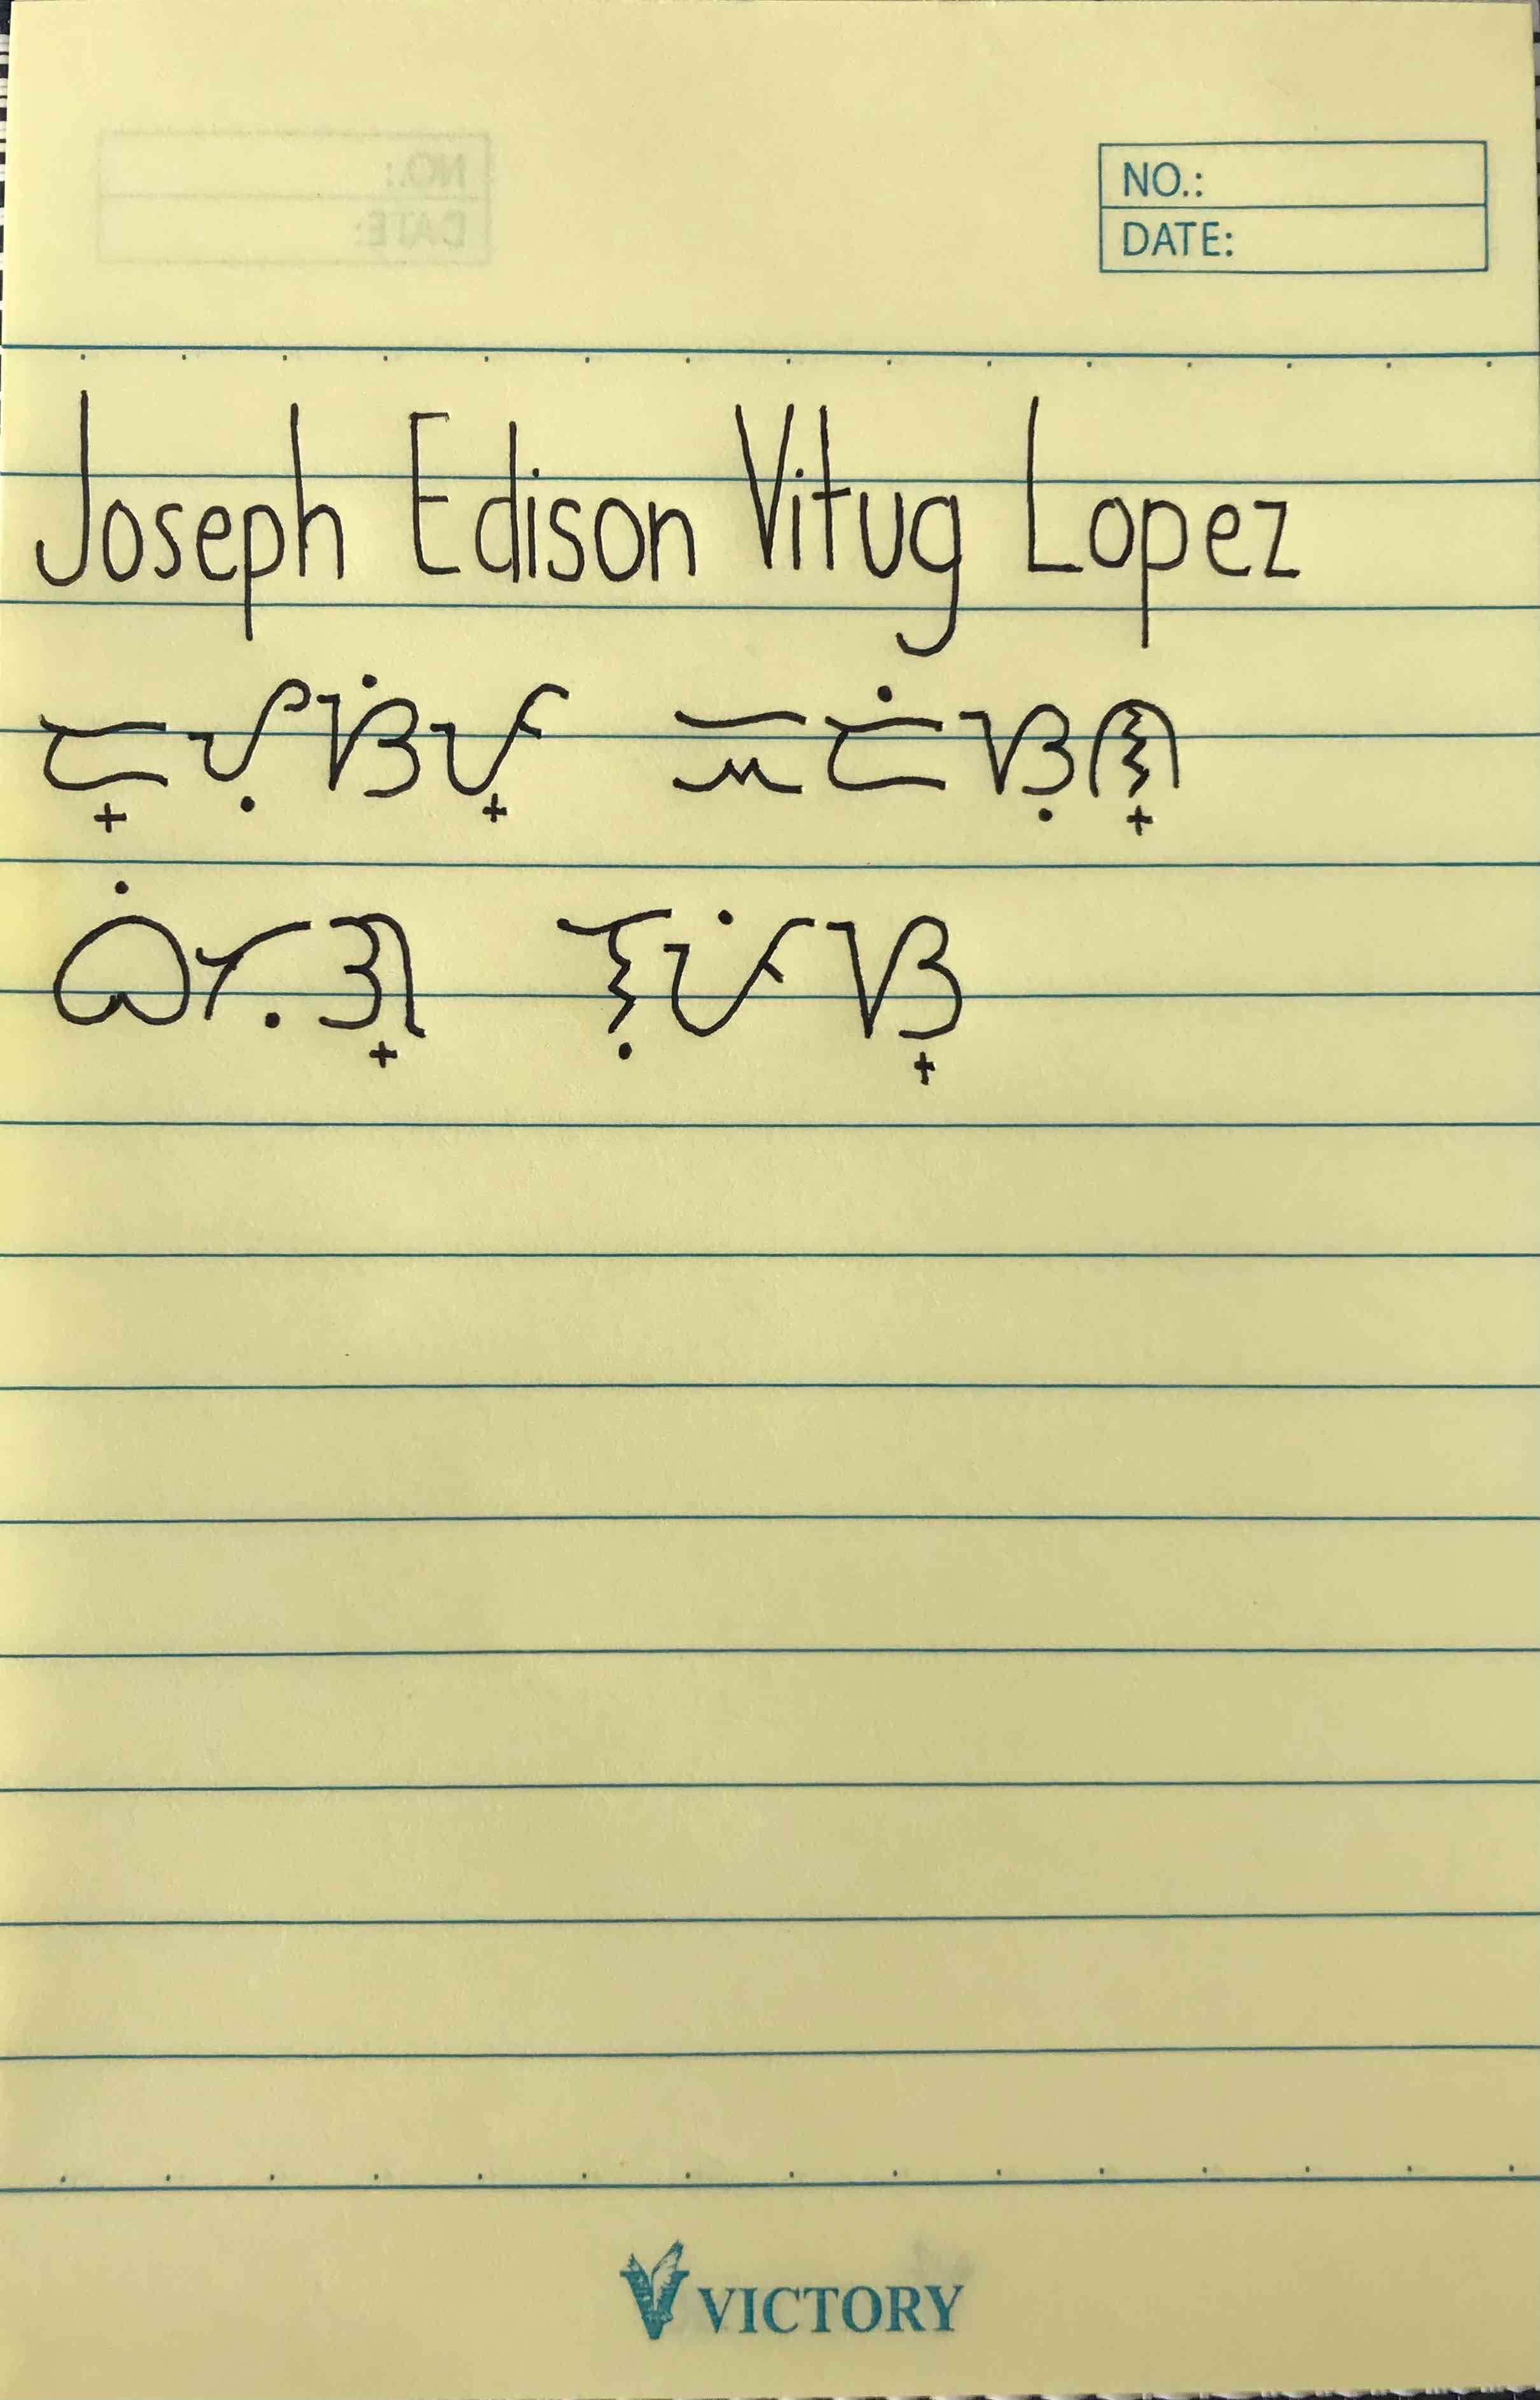 NO.:
DATE:
Joseph Edison Vitug Lopez
ᜇ᜔ᜌᜓᜐᜒᜉ᜔ ᜁᜇᜒᜐᜓᜈ᜔
ᜊᜒᜆᜓᜄ᜔ ᜎᜓᜉᜒᜐ᜔
VICTORY